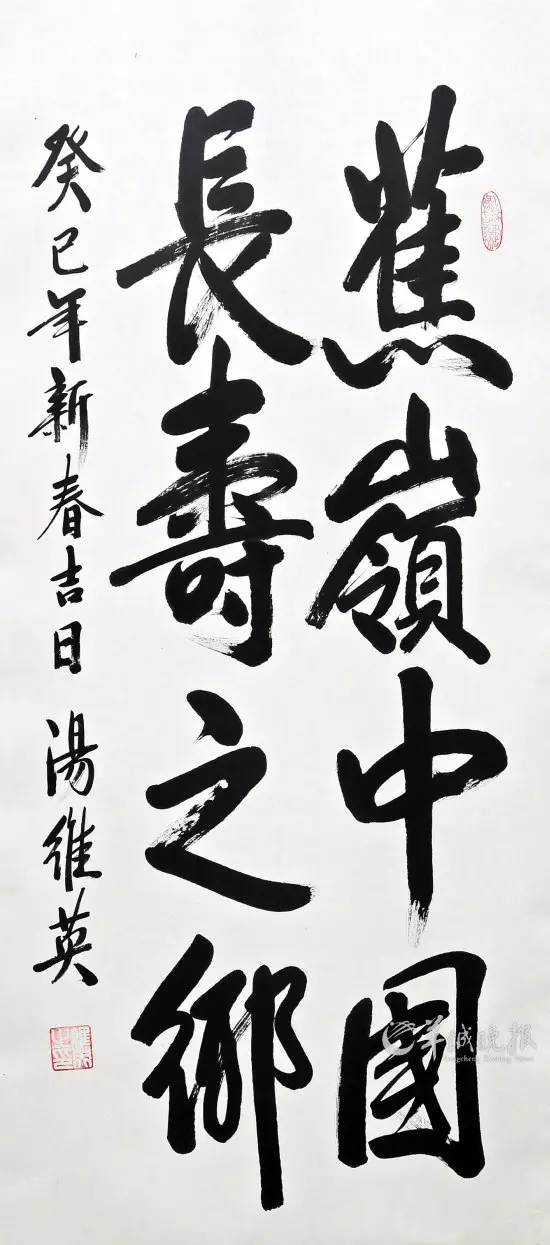 蕉嶺中國
長壽之鄉
癸巳年新春吉日 湯維英
羊城晚报
Yangcheng Evening News